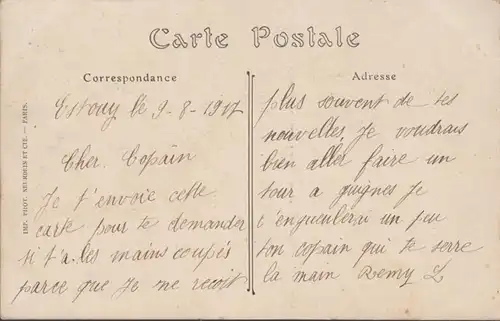 Carte Postale
Correspondance
Estouy le 9-8-1917
Cher Copain
Je t'envoie cette
carte pour te demander
si t'a les mains coupés
parce que Je ne recoit
Adresse
plus souvent de tes
nouvelles, Je voudrais
bien aller faire un
tour a guignes Je
t'engueulerai un peu
ton copain qui te serre
la main Remy L
IMP. PHOT. NEURDEIN ET CIE. — PARIS.